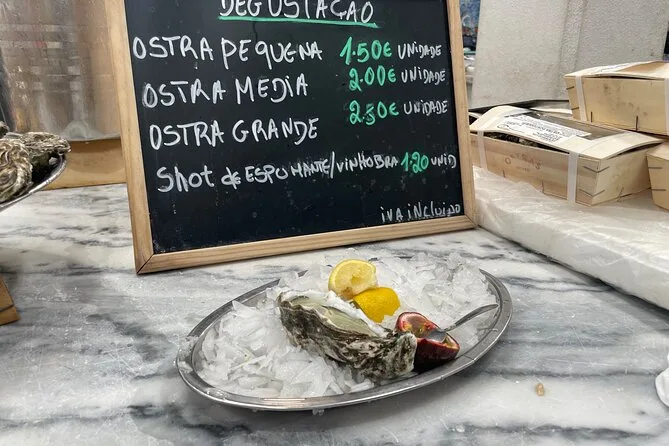 DEGUSTAÇÃO
OSTRA PEQUENA 1.50€ UNIDADE
OSTRA MEDIA 2.00€ UNIDADE
OSTRA GRANDE 2.50€ UNIDADE
Shot de ESPUMANTE/VINHO BRA 1.20 UNID
IVA INCLUIDO